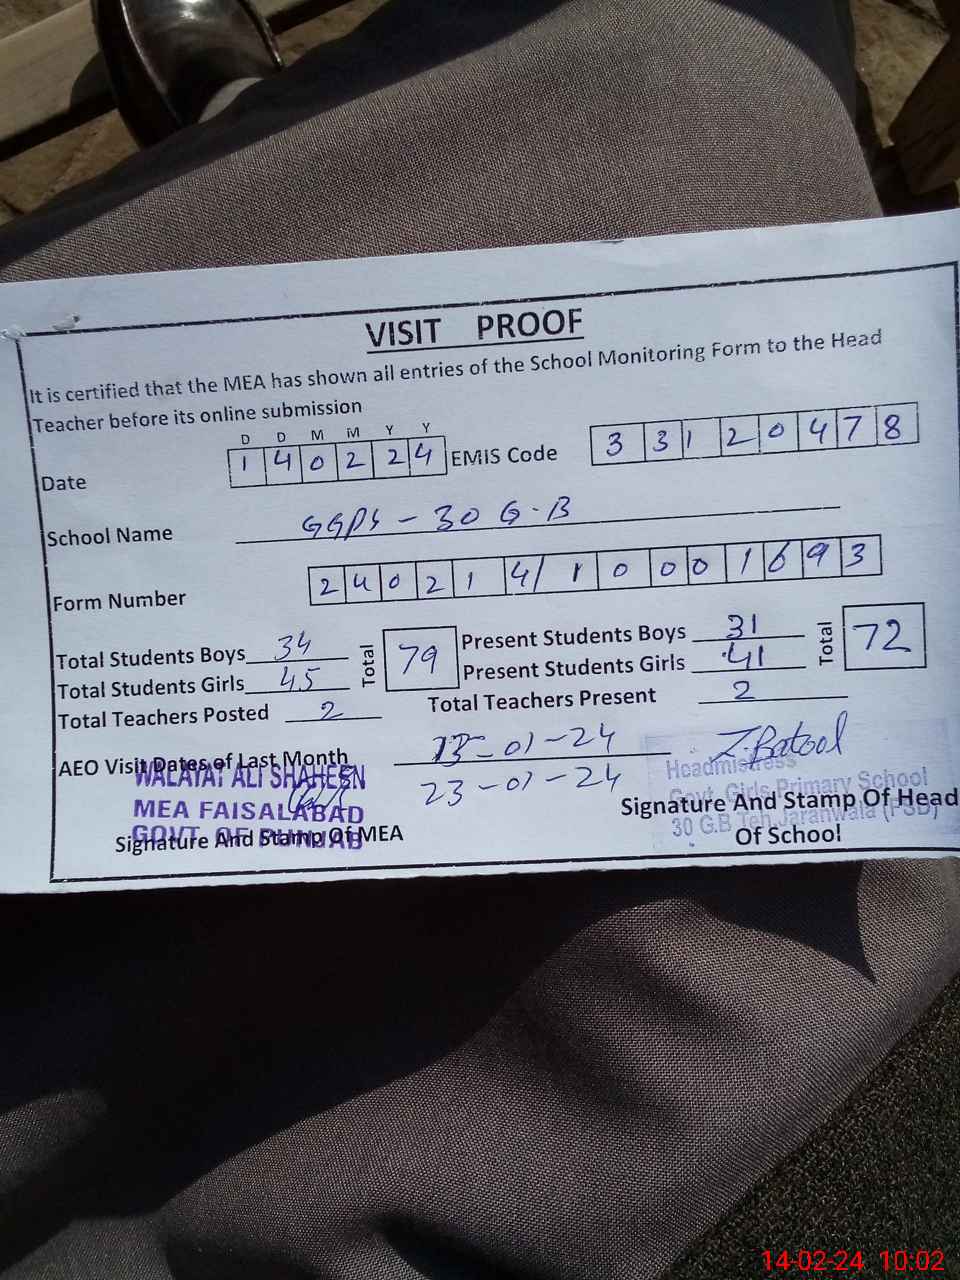 VISIT PROOF
It is certified that the MEA has shown all entries of the School Monitoring Form to the Head
Teacher before its online submission
D D M M Y Y
Date 1 4 0 2 2 4 EMIS Code 3 3 1 2 0 4 7 8
School Name GGPS - 30 G.B
Form Number 2 4 0 2 1 4/ 1 0 0 0 1 6 9 3
Total Students Boys 34 Total 79 Present Students Boys 31 Total 72
Total Students Girls 45 Present Students Girls 41
Total Teachers Posted 2 Total Teachers Present 2
AEO Visit Dates of Last Month 13-01-24
23-01-24
Z.Batool
WALAYAT ALI SHAHEEN
MEA FAISALABAD
GOVT OF PUNJAB
Signature And Stamp Of MEA
Headmistress
Govt. Girls Primary School
30 G.B Teh Jaranwala (FSD)
Signature And Stamp Of Head
Of School
14-02-24 10:02